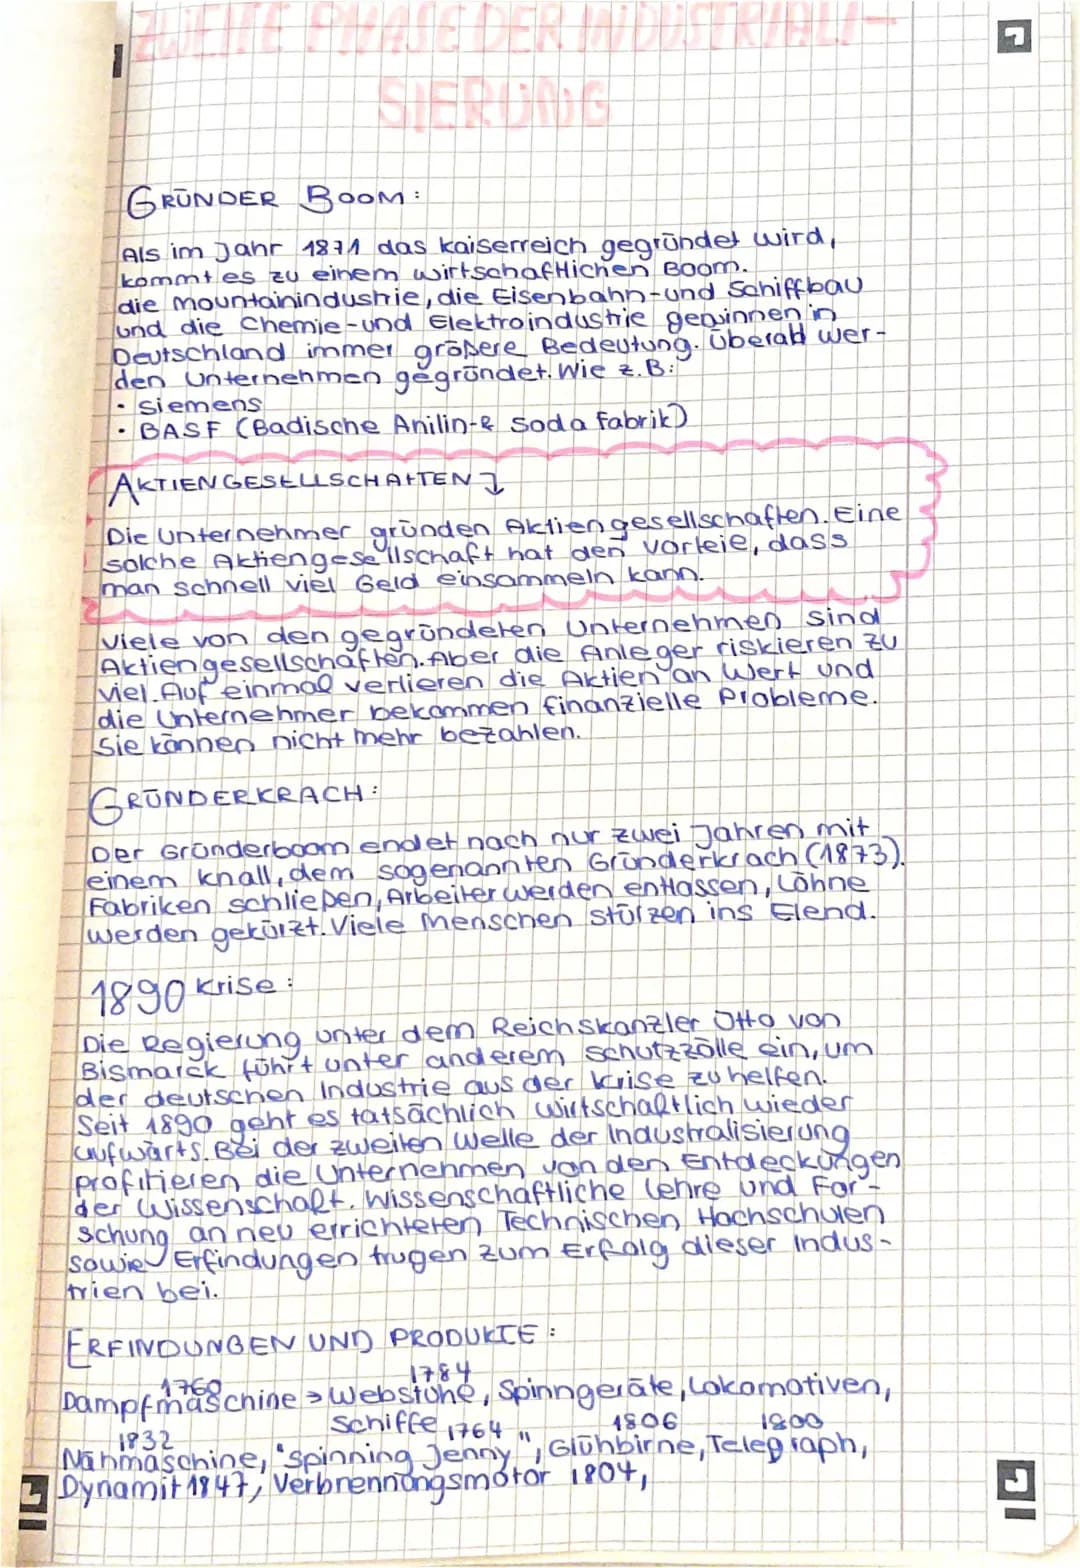 ZWEITE PHASE DER INDUSTRIALI-
SIERUNG
GRÜNDER BOOM:
Als im Jahr 1871 das Kaiserreich gegründet wird,
kommt es zu einem wirtschaftlichen Boom.
die Mountainindustrie, die Eisenbahn-und Schiffbau
und die Chemie-und Elektroindustrie gewinnen in
Deutschland immer größere Bedeutung. Überall wer-
den Unternehmen gegründet. Wie z.B:
• Siemens
• BASF (Badische Anilin-& Soda Fabrik)
AKTIENGESELLSCHAFTEN
Die Unternehmer gründen Aktiengesellschaften. Eine
solche Aktiengesellschaft hat den Vorleie, dass
man schnell viel Geld einsammeln kann.
Viele von den gegründeten Unternehmen sind
Aktiengesellschaften. Aber die Anleger riskieren zu
viel. Auf einmal verlieren die Aktien an Wert und
die Unternehmer bekommen finanzielle Probleme.
Sie können nicht mehr bezahlen.
GRÜNDERKRACH:
Der Gründerboom endet nach nur zwei Jahren mit
einem Knall, dem sogenannten Gründerkrach (1873).
Fabriken schließen, Arbeiter werden entlassen, Löhne
werden gekürzt. Viele Menschen stürzen ins Elend.
1890 Krise:
Die Regierung unter dem Reichskanzler Otto von
Bismarck führt unter anderem Schutzzölle ein, um
der deutschen Industrie aus der Krise zu helfen.
Seit 1890 geht es tatsächlich wirtschaftlich wieder
aufwärts. Bei der zweiten Welle der Industralisierung
profitieren die Unternehmen von den Entdeckungen
der Wissenschaft. Wissenschaftliche Lehre und For-
schung an neu errichteten Technischen Hochschulen
sowie Erfindungen trugen zum Erfolg dieser Indus-
trien bei.
ERFINDUNGEN UND PRODUKTE:
1769 1784
Dampfmaschine > Webstühe, Spinngeräte, Lokomotiven,
Schiffe 1764 1806 1800
1832
Nähmaschine, "Spinning Jenny", Glühbirne, Telegraph,
Dynamit 1847, Verbrennungsmotor 1804,